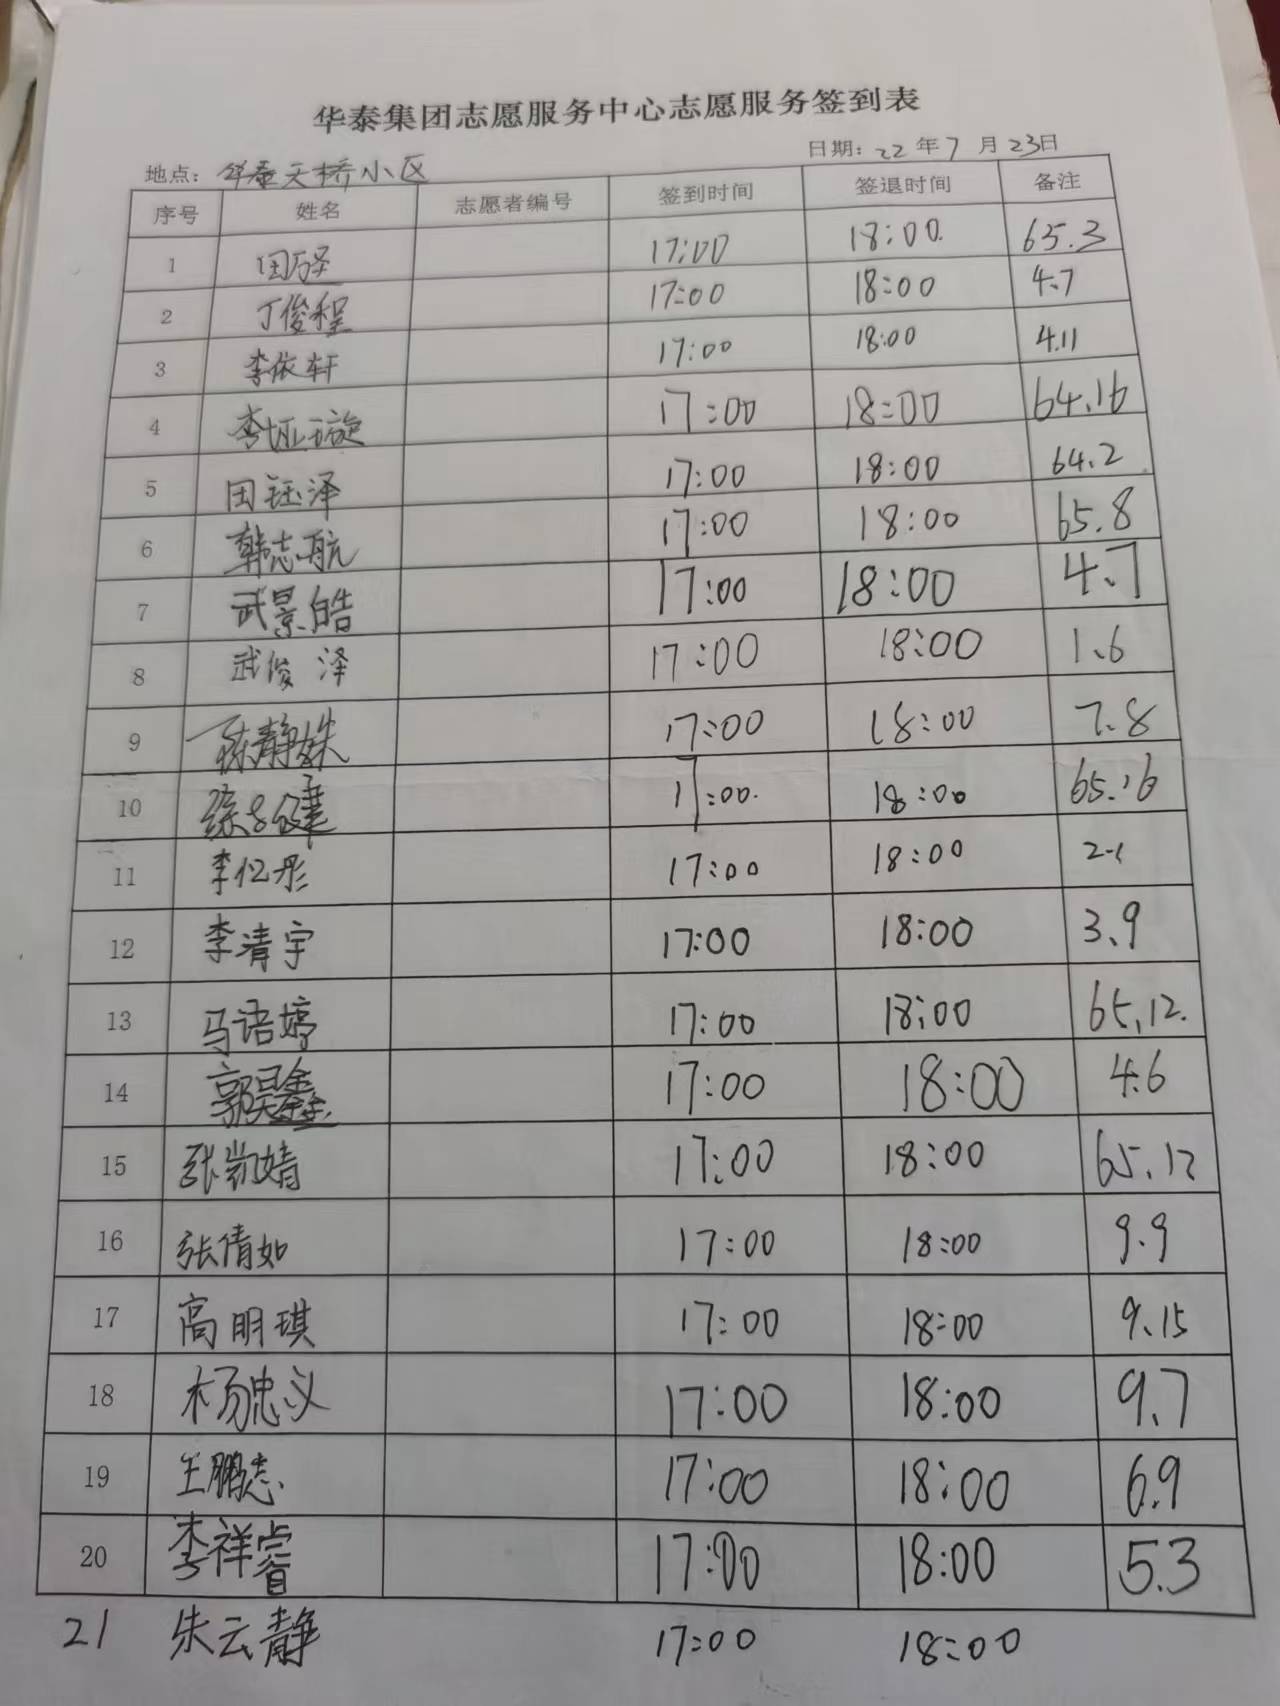 华泰集团志愿服务中心志愿服务签到表
地点：华泰天桥小区 日期：22年7月23日
序号 姓名 志愿者编号 签到时间 签退时间 备注
1 田万圣 17:00 18:00. 65.3
2 丁俊程 17:00 18:00 4.7
3 李依轩 17:00 18:00 4.11
4 李垭璇 17:00 18:00 64.16
5 田钰泽 17:00 18:00 64.2
6 韩志航 17:00 18:00 65.8
7 武景皓 17:00 18:00 4.7
8 武俊泽 17:00 18:00 1.6
9 陈静姝 17:00 18:00 7.8
10 17:00. 18:00 65.16
11 李亿彤 17:00 18:00 2-1
12 李清宇 17:00 18:00 3.9
13 马语婷 17:00 18:00 65.12.
14 郭昊鑫 17:00 18:00 4.6
15 张凯婧 17:00 18:00 65.12
16 张倩如 17:00 18:00 9.9
17 高明琪 17:00 18:00 9.15
18 杨忠义 17:00 18:00 9.7
19 王鹏志 17:00 18:00 6.9
20 李祥睿 17:00 18:00 5.3
21 朱云静 17:00 18:00